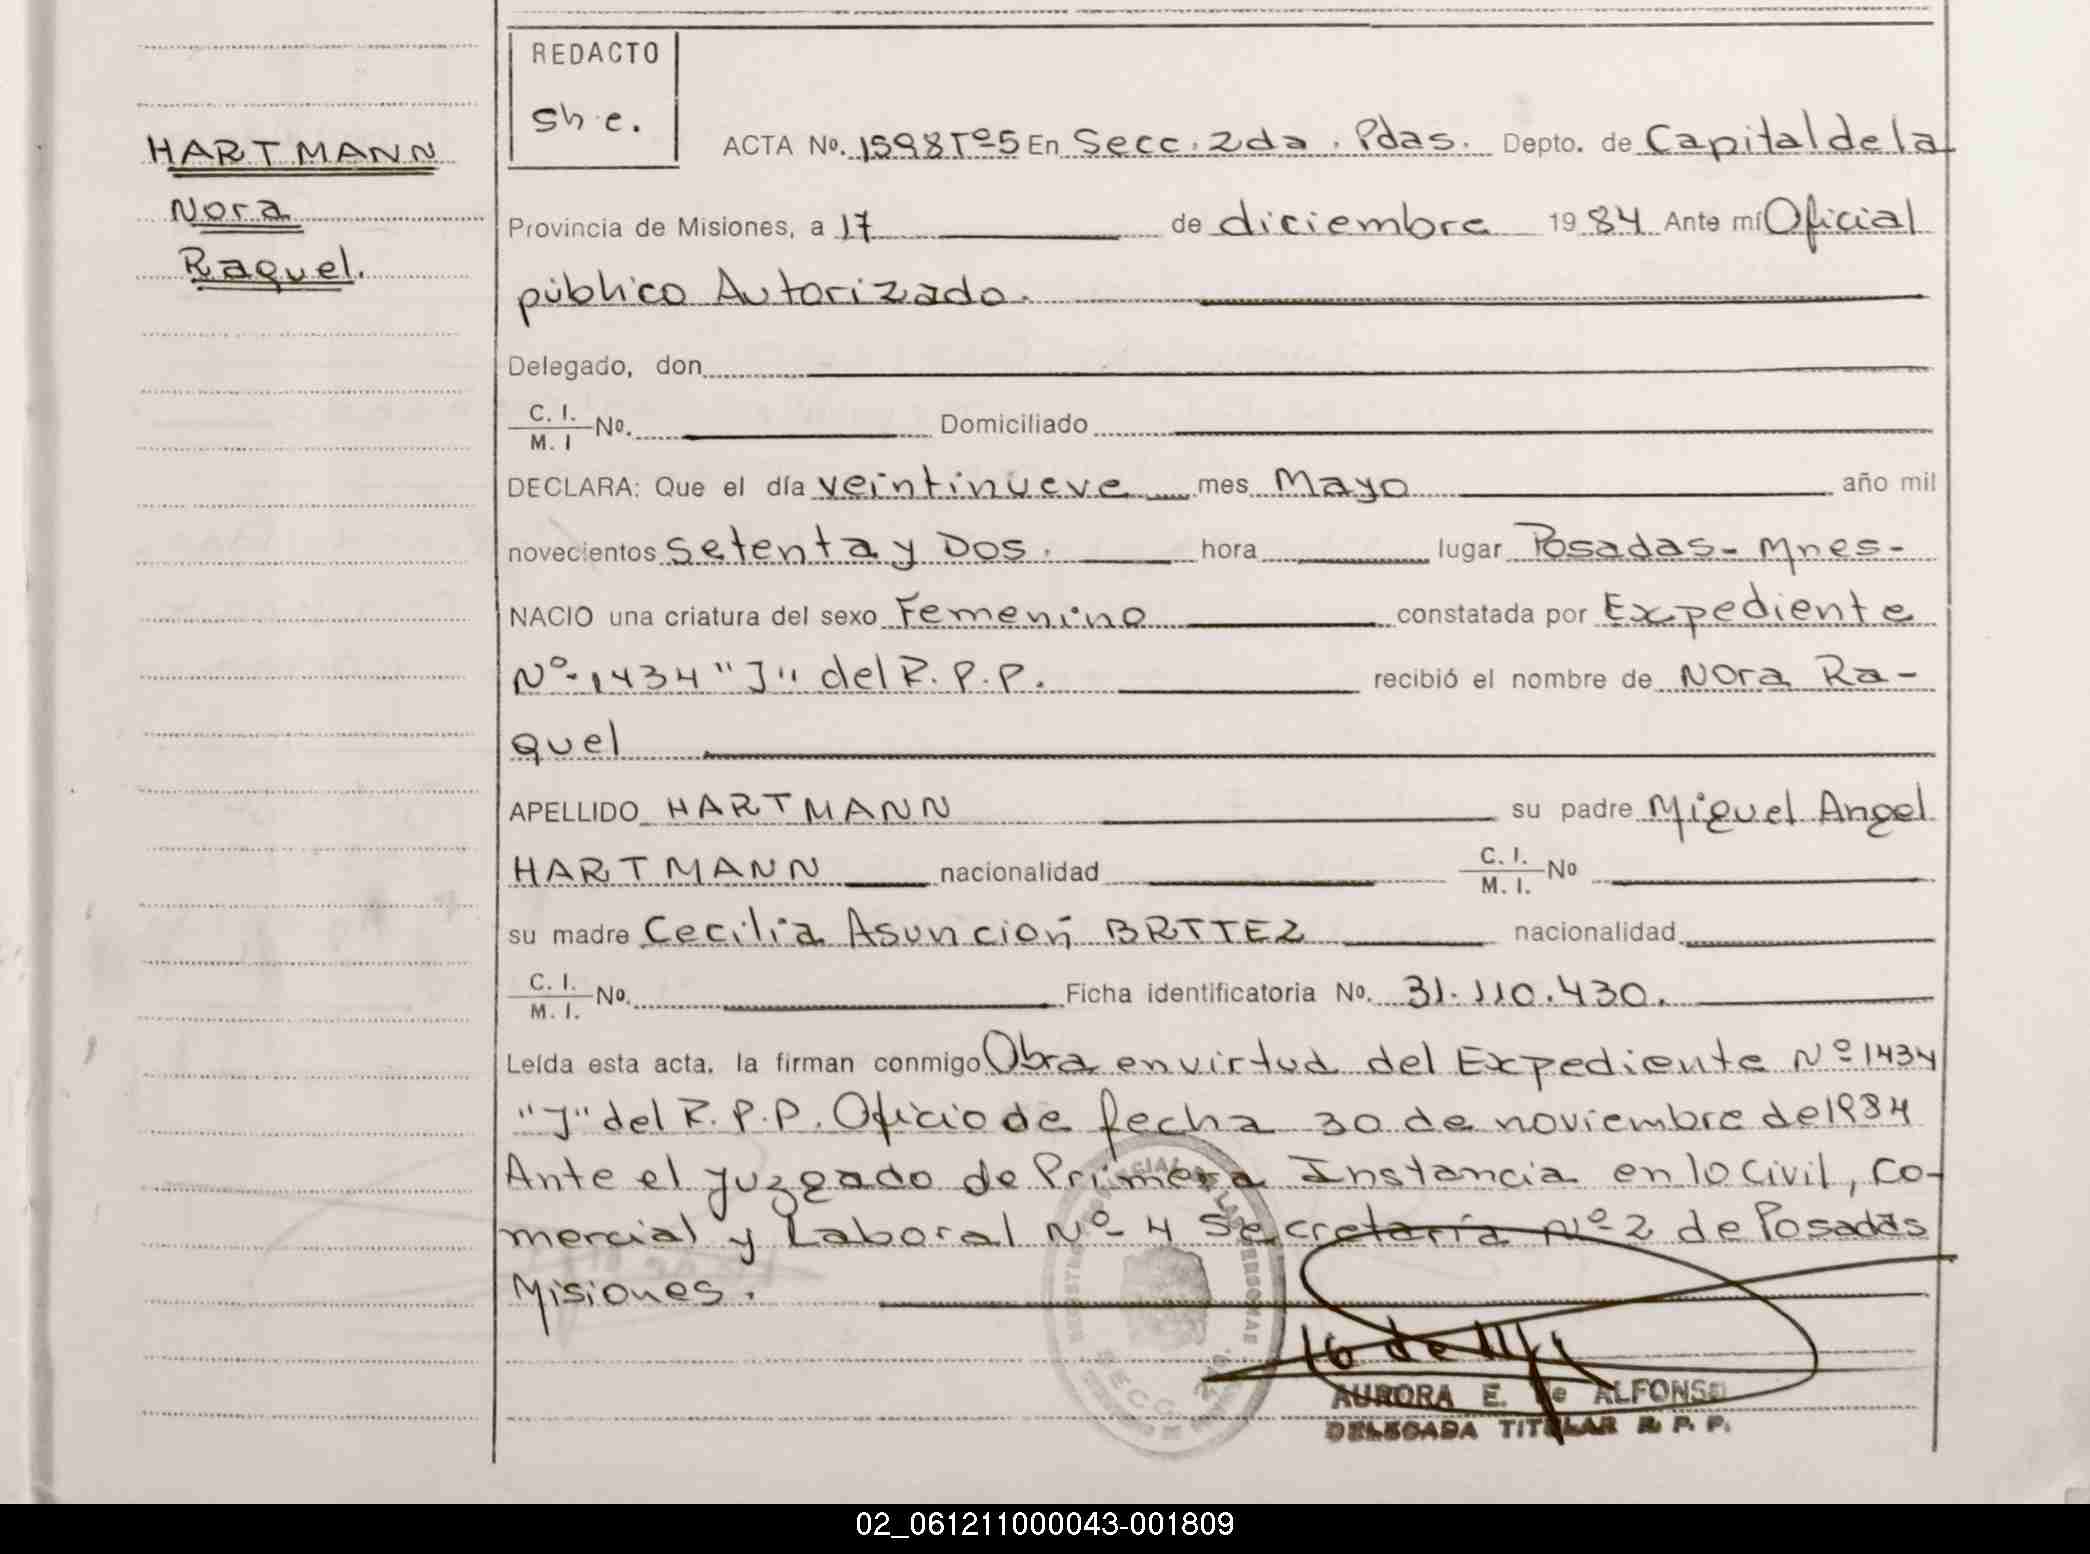 REDACTO
sh.e.
HARTMANN
Nora
Raquel.
ACTA No. 1598 Tº5 En Secc. 2da. Pdas. Depto. de Capital de la
Provincia de Misiones, a 17 de diciembre 1984 Ante mí Oficial
público Autorizado.
Delegado, don
C. I. / M. I No. Domiciliado
DECLARA: Que el día veintinueve mes Mayo año mil
novecientos Setenta y Dos. hora lugar Posadas - Mnes -
NACIO una criatura del sexo Femenino constatada por Expediente
Nº-1434 "J" del R.P.P. recibió el nombre de Nora Ra-
quel
APELLIDO HARTMANN su padre Miguel Angel
HARTMANN nacionalidad C. I. / M. I. No
su madre Cecilia Asunción BRITEZ nacionalidad
C. I. / M. I. No. Ficha identificatoria No. 31.110.430.
Leída esta acta, la firman conmigo Obra en virtud del Expediente Nº 1434
"J" del R.P.P. Oficio de fecha 30 de noviembre de 1984
Ante el Juzgado de Primera Instancia en lo Civil, Co-
mercial y Laboral Nº-4 Secretaría Nº 2 de Posadas
Misiones.
AURORA E. de ALFONSO
DELEGADA TITULAR R. P. P.
02_061211000043-001809